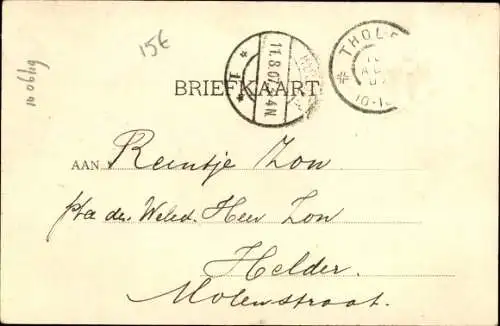 15€
100619
THOL
10-1
11.8.07 4N
BRIEFKAART
AAN Reintje Zon
p/a den Weled. Heer Zon
Helder.
Molenstraat.